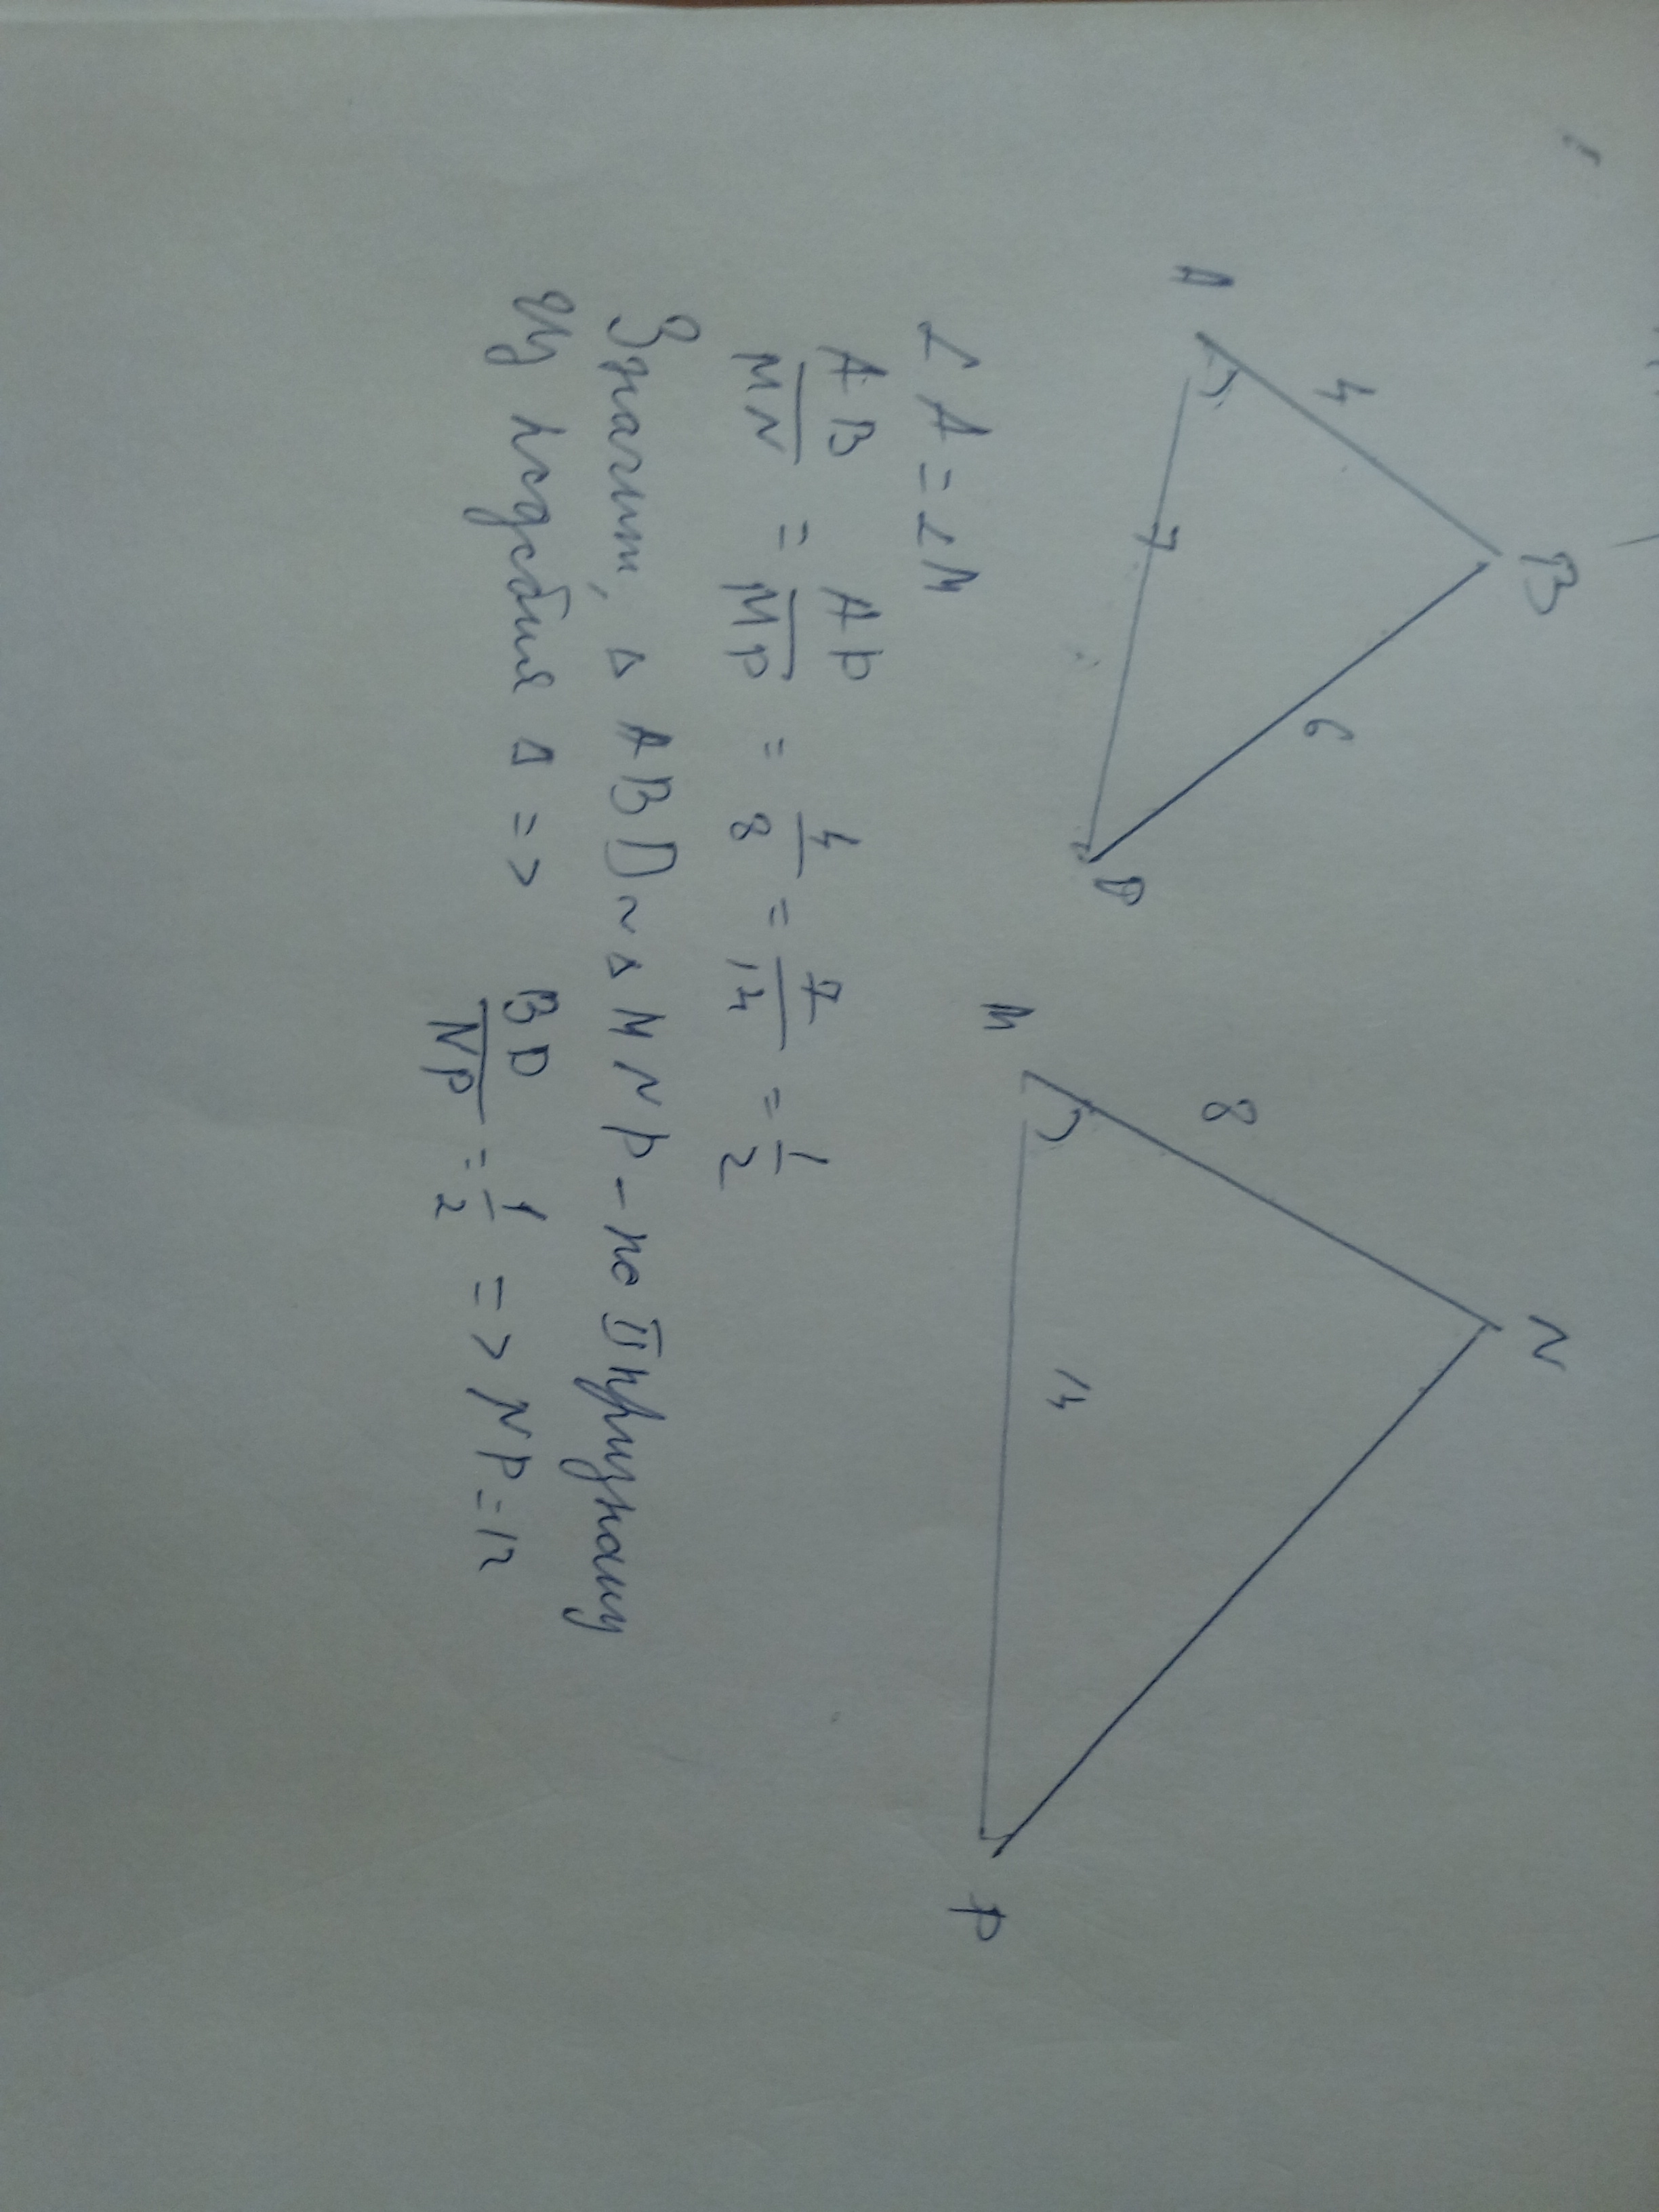 B
N
4
6
8
A
7
D
M
14
P
∠A = ∠M
AB/MN = AD/MP = 4/8 = 7/14 = 1/2
Значит, △ABD ~ △MNP - по II признаку
Из подобия △ => BD/NP = 1/2 => NP = 12